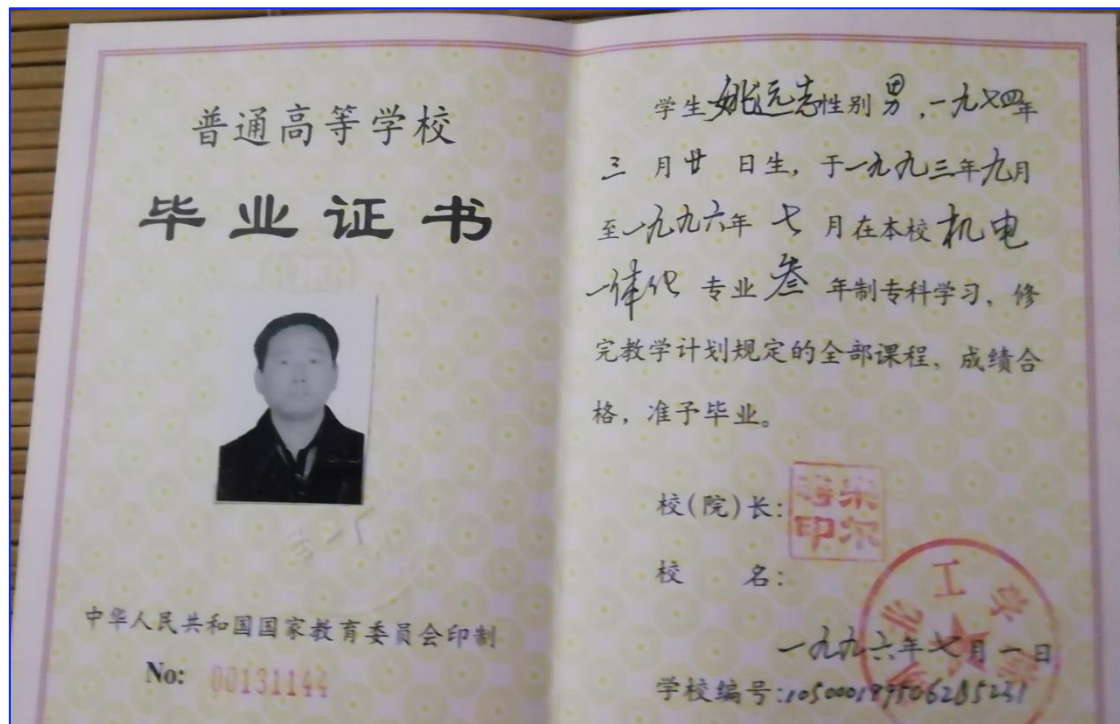 普通高等学校
毕业证书
中华人民共和国国家教育委员会印制
No: 00131144
学生姚远志性别男，一九七四年
三月廿日生，于一九九三年九月
至一九九六年七月在本校机电
一体化专业叁年制专科学习，修
完教学计划规定的全部课程，成绩合
格，准予毕业。
校(院)长：
校 名：
一九九六年七月一日
学校编号: